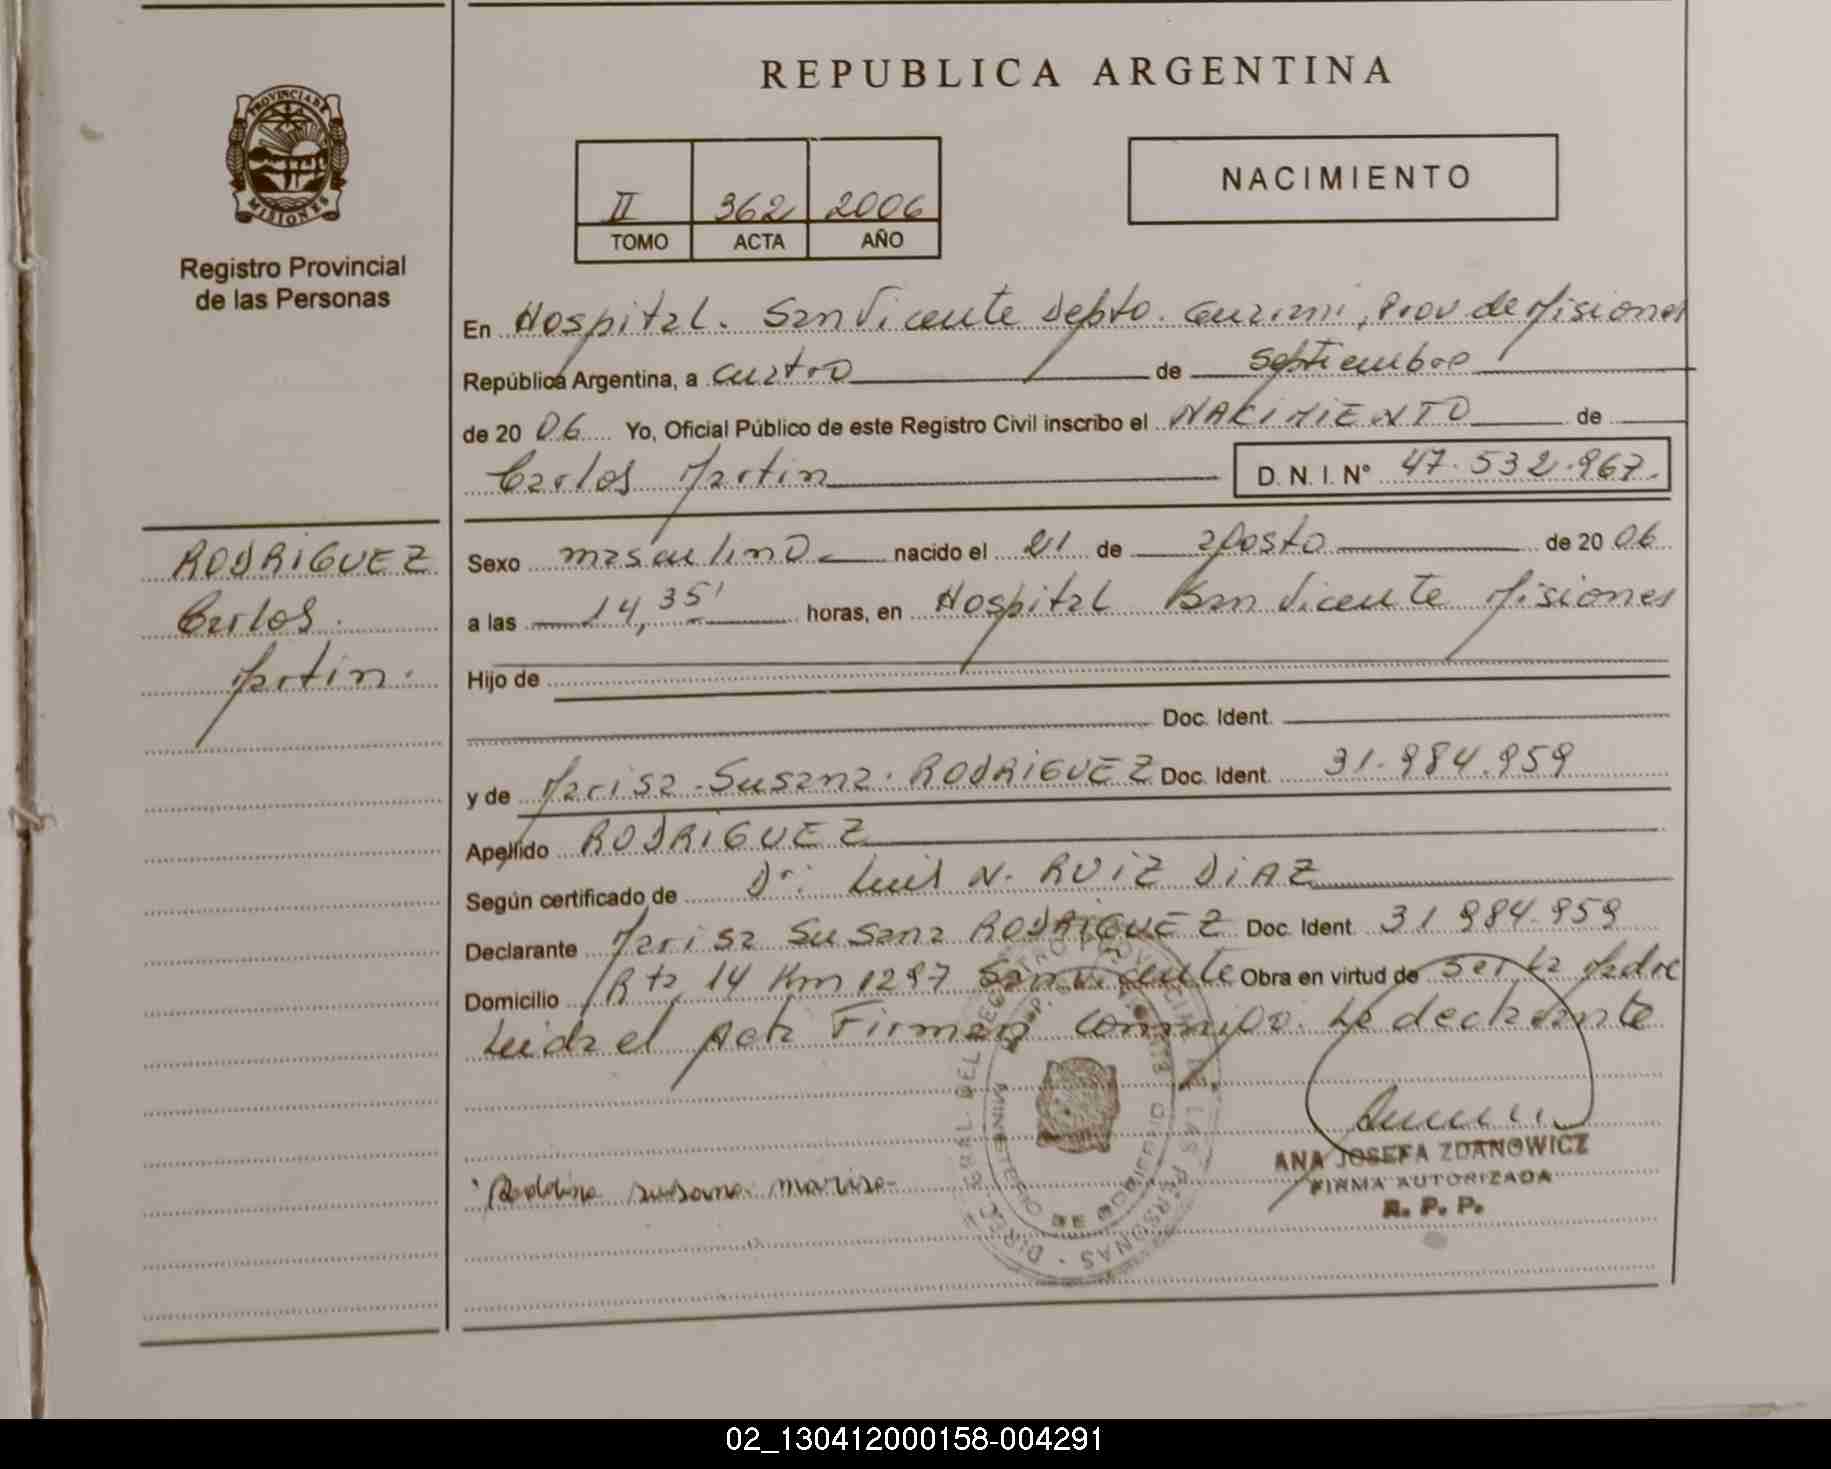 REPUBLICA ARGENTINA
PROVINCIA DE
MISIONES
Registro Provincial
de las Personas
II 362 2006
TOMO ACTA AÑO
NACIMIENTO
En Hospital. San Vicente Depto. Guarani, Prov de Misiones
República Argentina, a cuatro de Septiembre
de 20 06 Yo, Oficial Público de este Registro Civil inscribo el NACIMIENTO de
Carlos Martin D. N. I. N° 47.532.967.
RODRIGUEZ
Carlos.
Martin.
Sexo masculino nacido el 21 de agosto de 20 06
a las 14,35' horas, en Hospital San Vicente Misiones
Hijo de
Doc. Ident.
y de Marisa Susana RODRIGUEZ Doc. Ident. 31.984.959
Apellido RODRIGUEZ
Según certificado de Dr: Luis N. RUIZ DIAZ
Declarante Marisa Susana RODRIGUEZ Doc. Ident 31 984.959
Domicilio Rta 14 Km 1297 San Vicente Obra en virtud de ser la Madre
Leida el Acta Firman conmigo. La declarante
susana marisa
ANA JOSEFA ZDANOWICZ
FIRMA AUTORIZADA
R. P. P.
02_130412000158-004291